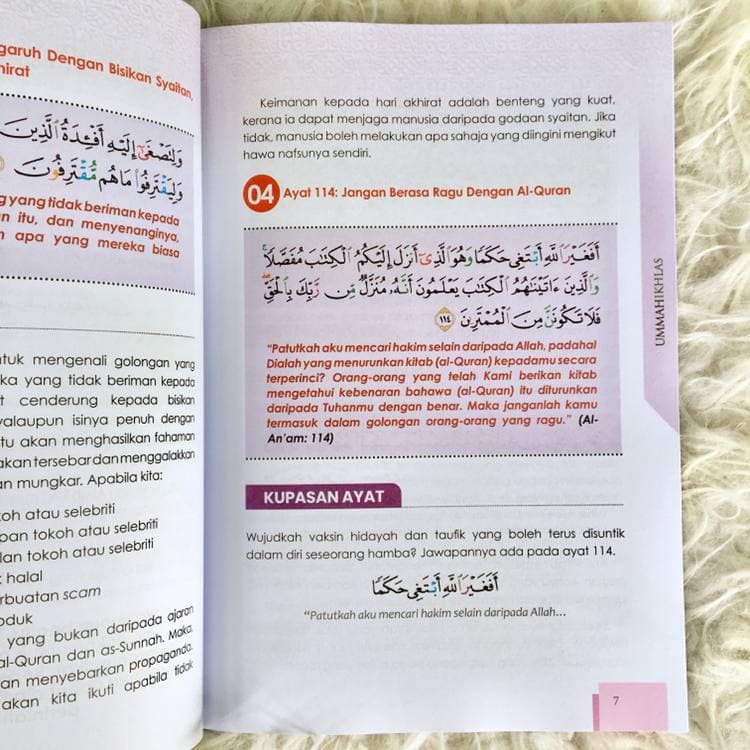 garuh Dengan Bisikan Syaitan,
hirat
وَلِتَصْغَىٰٓ إِلَيْهِ أَفْـِٔدَةُ ٱلَّذِينَ
وَلِيَقْتَرِفُوا۟ مَا هُم مُّقْتَرِفُونَ
yang tidak beriman kepada
n itu, dan menyenanginya,
n apa yang mereka biasa
ntuk mengenali golongan yang
ka yang tidak beriman kepada
t cenderung kepada bisikan
walaupun isinya penuh dengan
tu akan menghasilkan fahaman
akan tersebar dan menggalakkan
n mungkar. Apabila kita:
oh atau selebriti
pan tokoh atau selebriti
lan tokoh atau selebriti
k halal
rbuatan scam
oduk
yang bukan daripada ajaran
al-Quran dan as-Sunnah. Maka,
an menyebarkan propaganda.
akan kita ikuti apabila tidak
Keimanan kepada hari akhirat adalah benteng yang kuat,
kerana ia dapat menjaga manusia daripada godaan syaitan. Jika
tidak, manusia boleh melakukan apa sahaja yang diingini mengikut
hawa nafsunya sendiri.
04 Ayat 114: Jangan Berasa Ragu Dengan Al-Quran
أَفَغَيْرَ ٱللَّهِ أَبْتَغِى حَكَمًا وَهُوَ ٱلَّذِىٓ أَنزَلَ إِلَيْكُمُ ٱلْكِتَـٰبَ مُفَصَّلًا ۚ
وَٱلَّذِينَ ءَاتَيْنَـٰهُمُ ٱلْكِتَـٰبَ يَعْلَمُونَ أَنَّهُۥ مُنَزَّلٌ مِّن رَّبِّكَ بِٱلْحَقِّ ۖ
فَلَا تَكُونَنَّ مِنَ ٱلْمُمْتَرِينَ ١١٤
“Patutkah aku mencari hakim selain daripada Allah, padahal
Dialah yang menurunkan kitab (al-Quran) kepadamu secara
terperinci? Orang-orang yang telah Kami berikan kitab
mengetahui kebenaran bahawa (al-Quran) itu diturunkan
daripada Tuhanmu dengan benar. Maka janganlah kamu
termasuk dalam golongan orang-orang yang ragu.” (Al-
An’am: 114)
KUPASAN AYAT
Wujudkah vaksin hidayah dan taufik yang boleh terus disuntik
dalam diri seseorang hamba? Jawapannya ada pada ayat 114.
أَفَغَيْرَ ٱللَّهِ أَبْتَغِى حَكَمًا
“Patutkah aku mencari hakim selain daripada Allah...
UMMAHIKHLAS
7